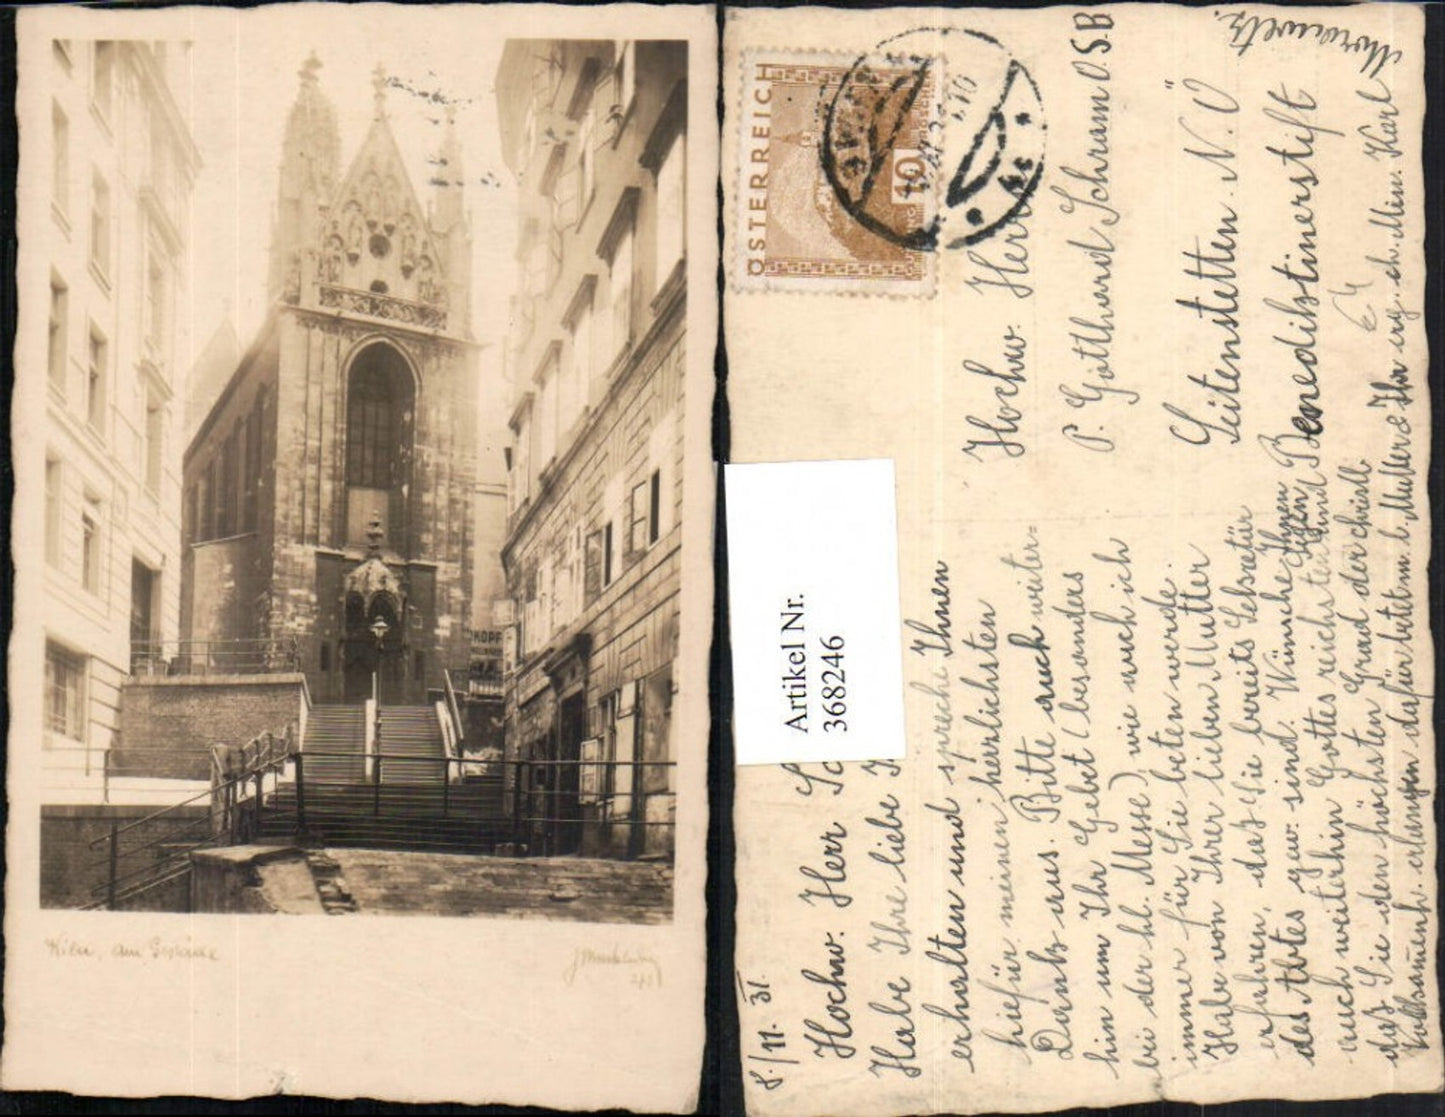 KOPF
Wien, am Gestade
ÖSTERREICH
10
GROSCHEN
Artikel Nr.
368246
Hochw. Herr
P. Gotthard Schram O.S.B
Seitenstetten N.Ö
Benediktinerstift
8./11. 31.
Hochw. Herr
Habe Ihre liebe
erhalten und spreche Ihnen
hiefür meinen herzlichsten
Dank aus. Bitte auch weiter-
hin um Ihr Gebet (besonders
bei der hl. Messe) wie auch ich
immer für Sie beten werde.
Habe von Ihrer lieben Mutter
erfahren, das Sie bereits Sekretär
des Abtes gew. sind. Wünsche Ihnen
auch weiterhin Gottes reichsten Segen und
das Sie den höchsten Grad der christl.
Vollkommenh. erlangen dafür betet m. b. Mutter & Ihr erg. eh. Min. Karl
Morawetz.